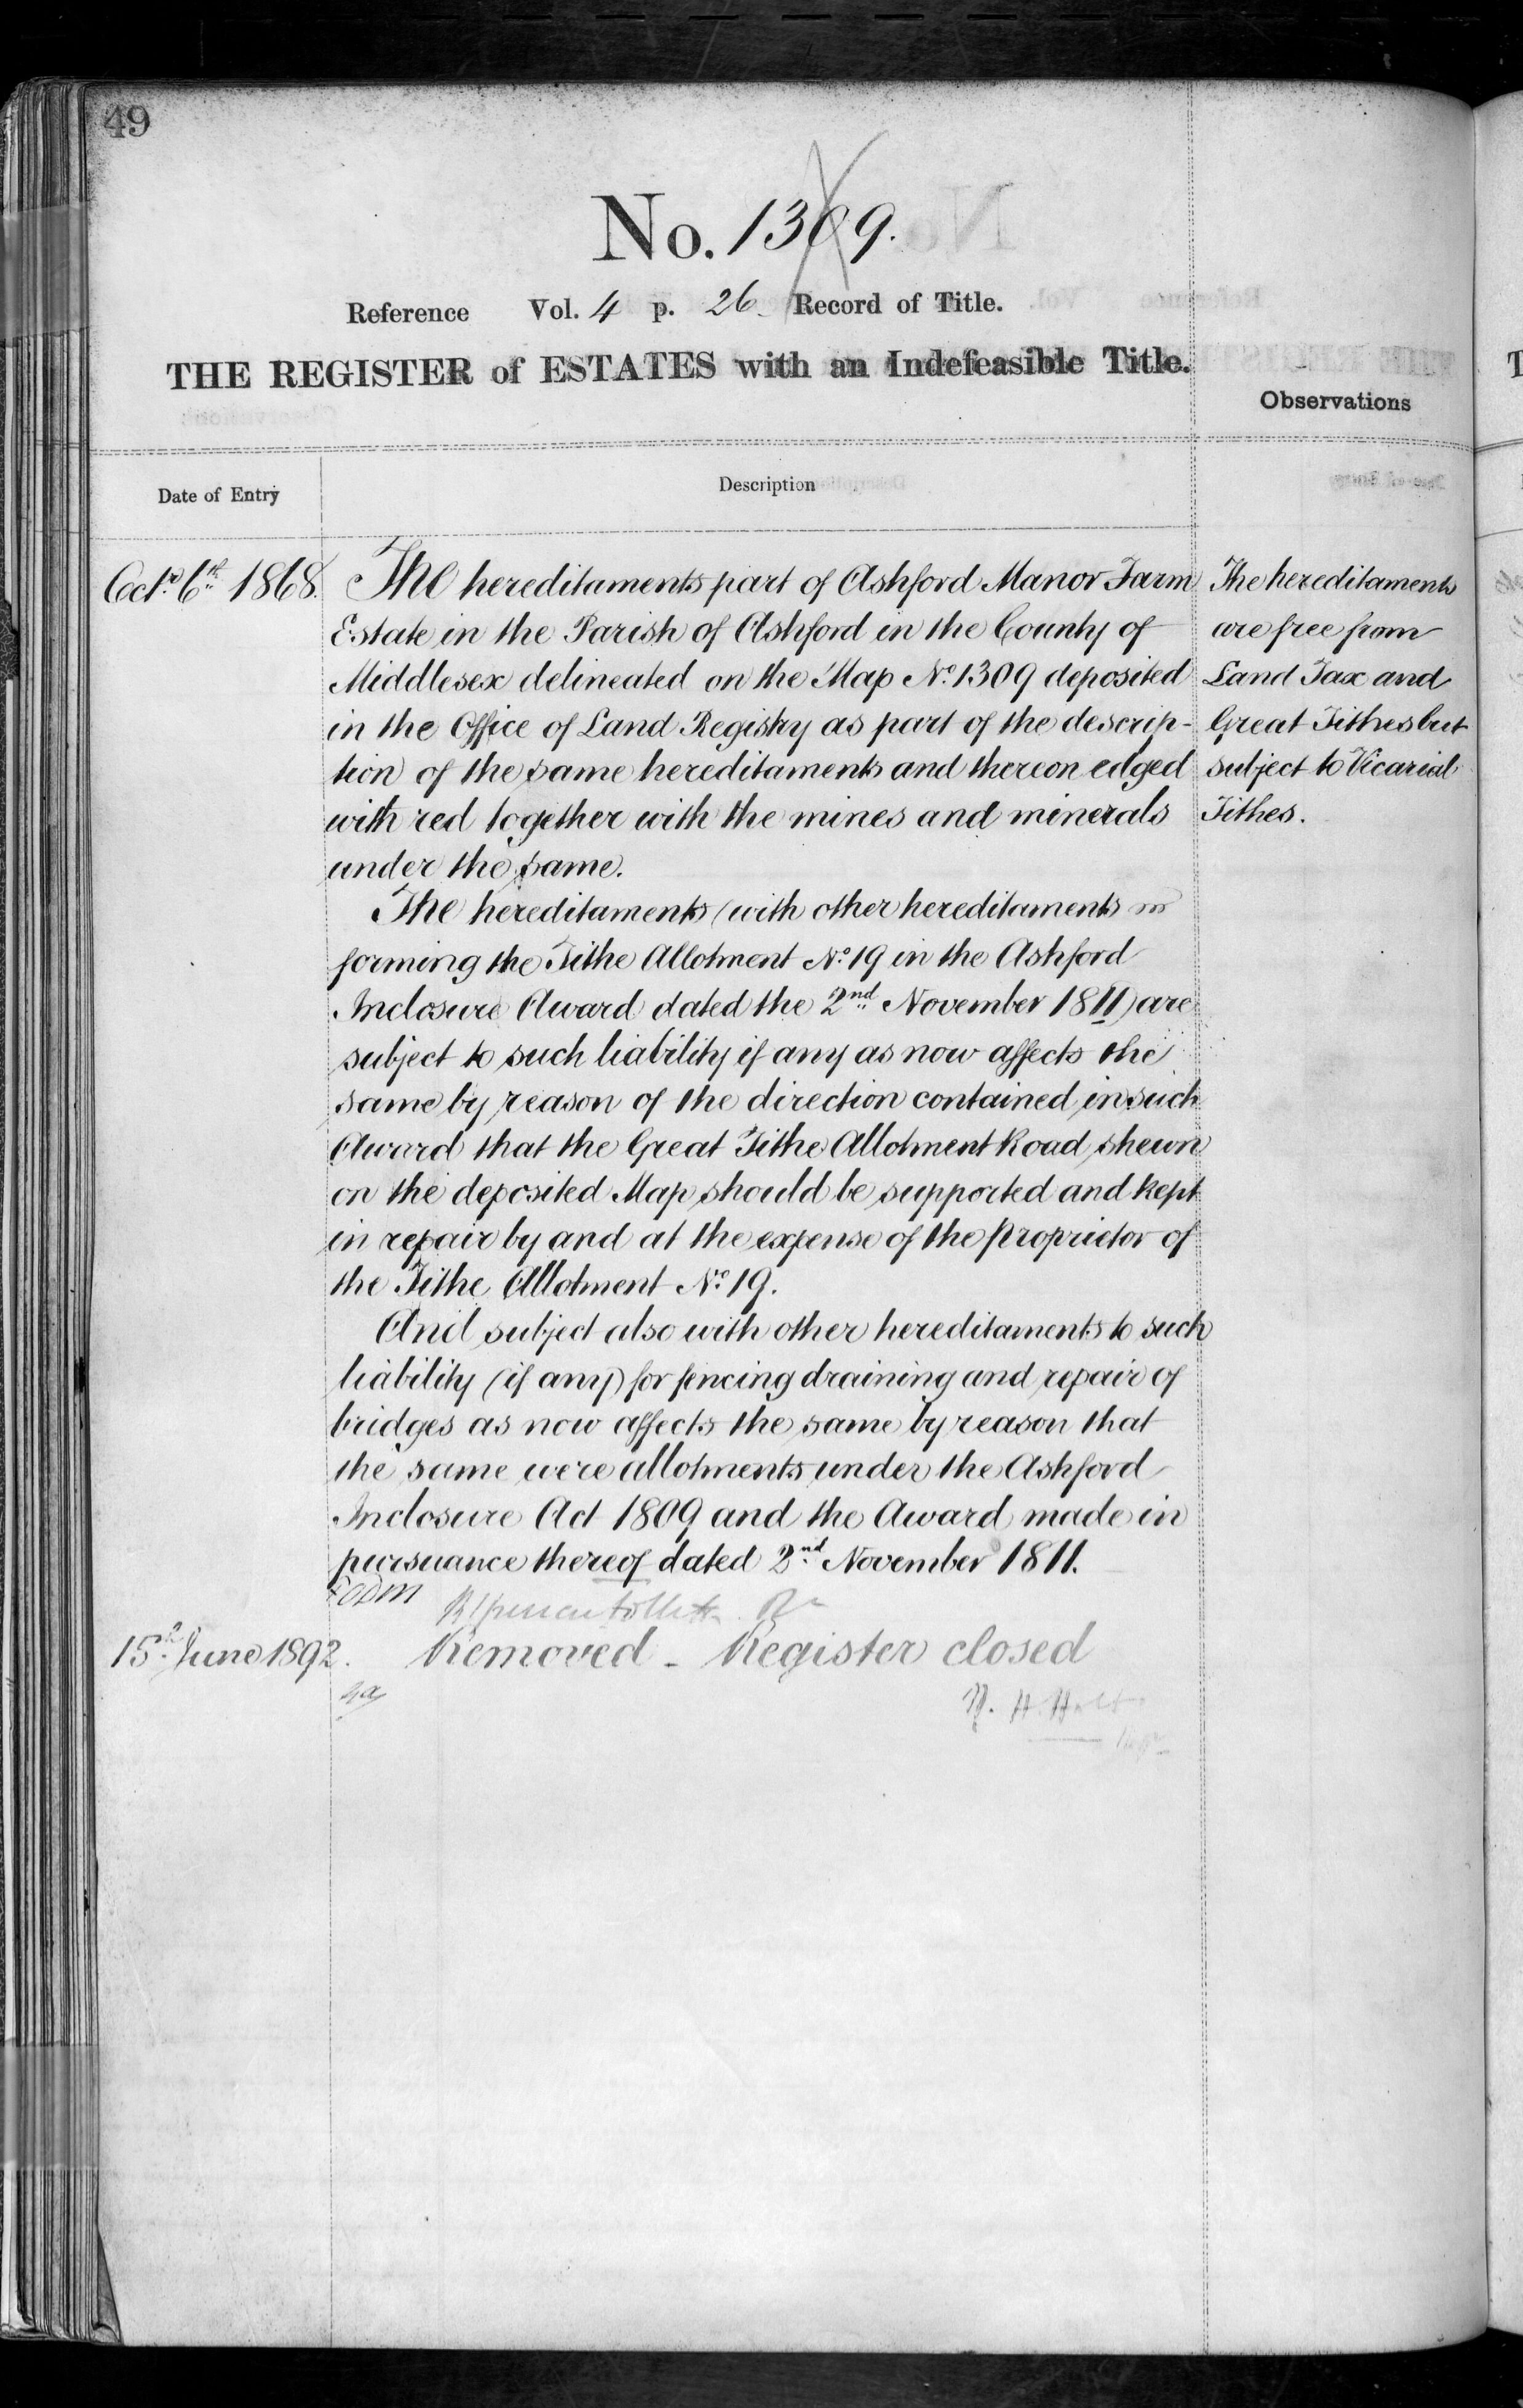 49
No. 1309.
Reference Vol. 4 p. 26. Record of Title.
THE REGISTER of ESTATES with an Indefeasible Title.
Observations
Date of Entry
Description
Octr. 6th 1868.
The hereditaments part of Ashford Manor Farm
Estate in the Parish of Ashford in the County of
Middlesex delineated on the Map No. 1309 deposited
in the Office of Land Registry as part of the descrip-
tion of the same hereditaments and thereon edged
with red together with the mines and minerals
under the same.
The hereditaments (with other hereditaments
forming the Tithe Allotment No. 19 in the Ashford
Inclosure Award dated the 2nd November 1811) are
subject to such liability if any as now affects the
same by reason of the direction contained in such
Award that the Great Tithe Allotment Road shewn
on the deposited Map should be supported and kept
in repair by and at the expense of the Proprietor of
the Tithe Allotment No. 19.
And subject also with other hereditaments to such
liability (if any) for fencing draining and repair of
bridges as now affects the same by reason that
the same were allotments under the Ashford
Inclosure Act 1809 and the Award made in
pursuance thereof dated 2nd November 1811.
15th June 1892.
Removed - Register closed
The hereditaments
are free from
Land Tax and
Great Tithes but
subject to Vicarial
Tithes.